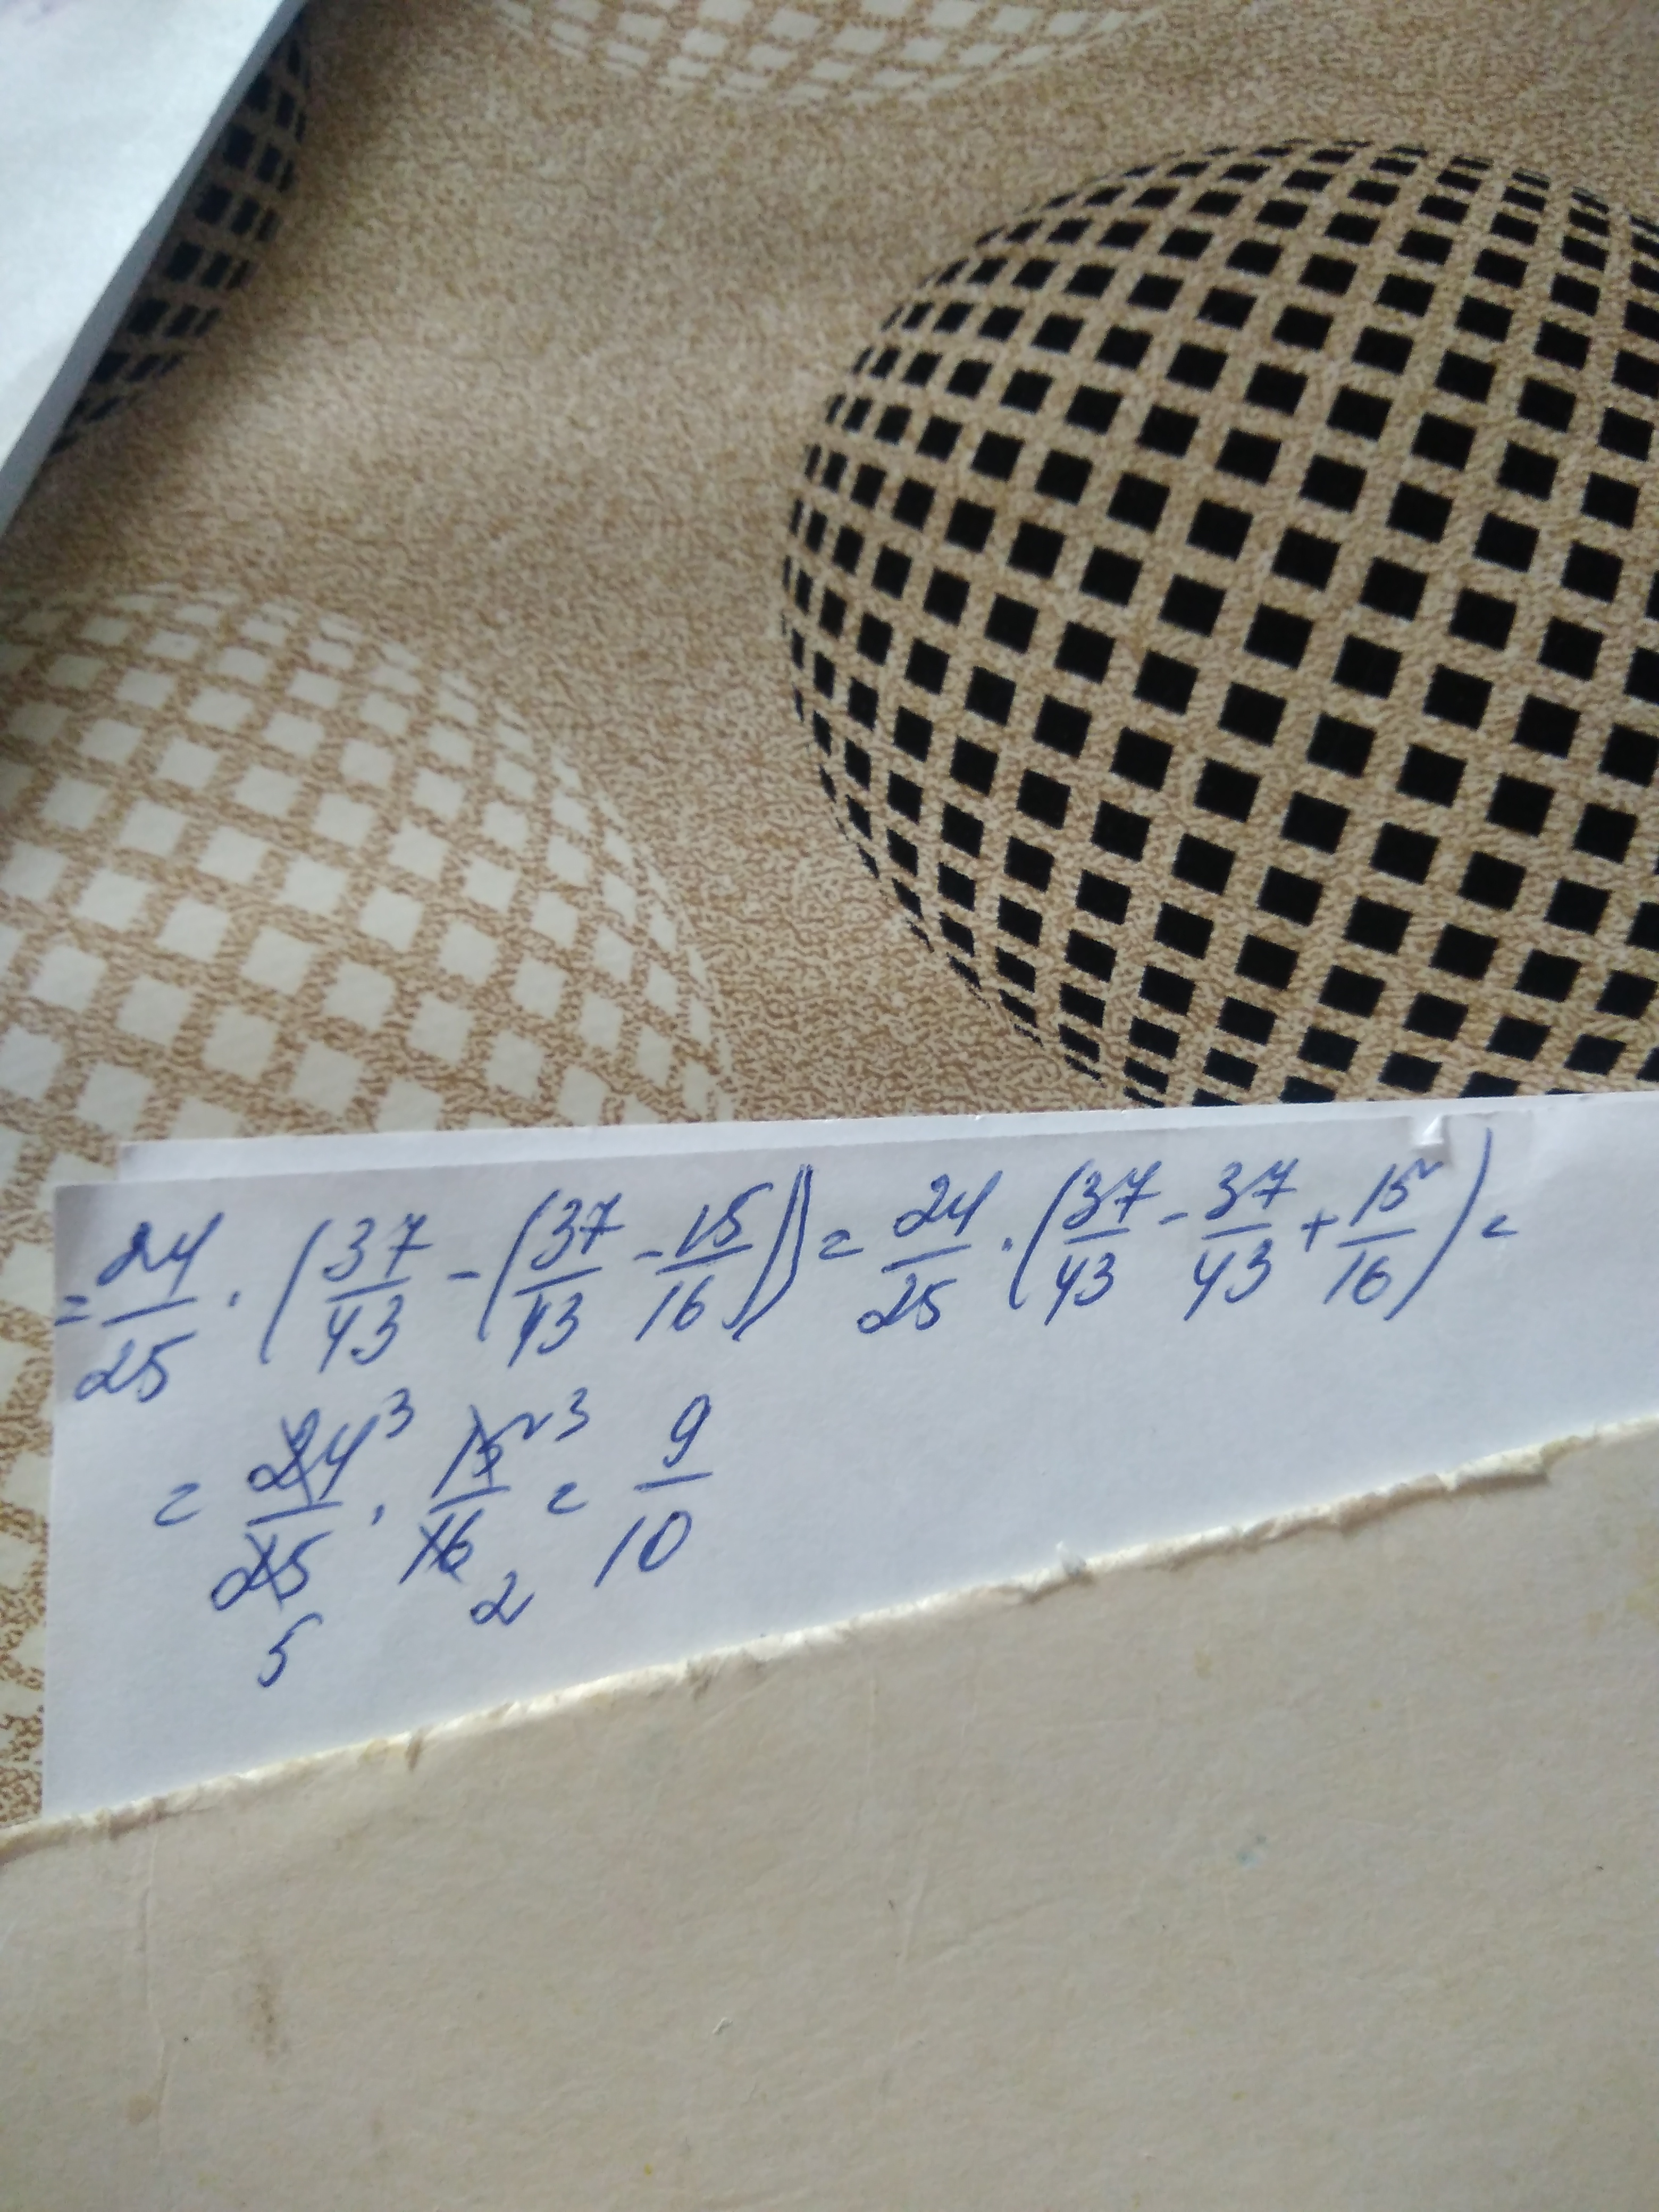 = 24/25 · (37/43 - (37/43 - 15/16)) = 24/25 · (37/43 - 37/43 + 15/16) =
= 24 3/25 5 · 15 3/16 2 = 9/10